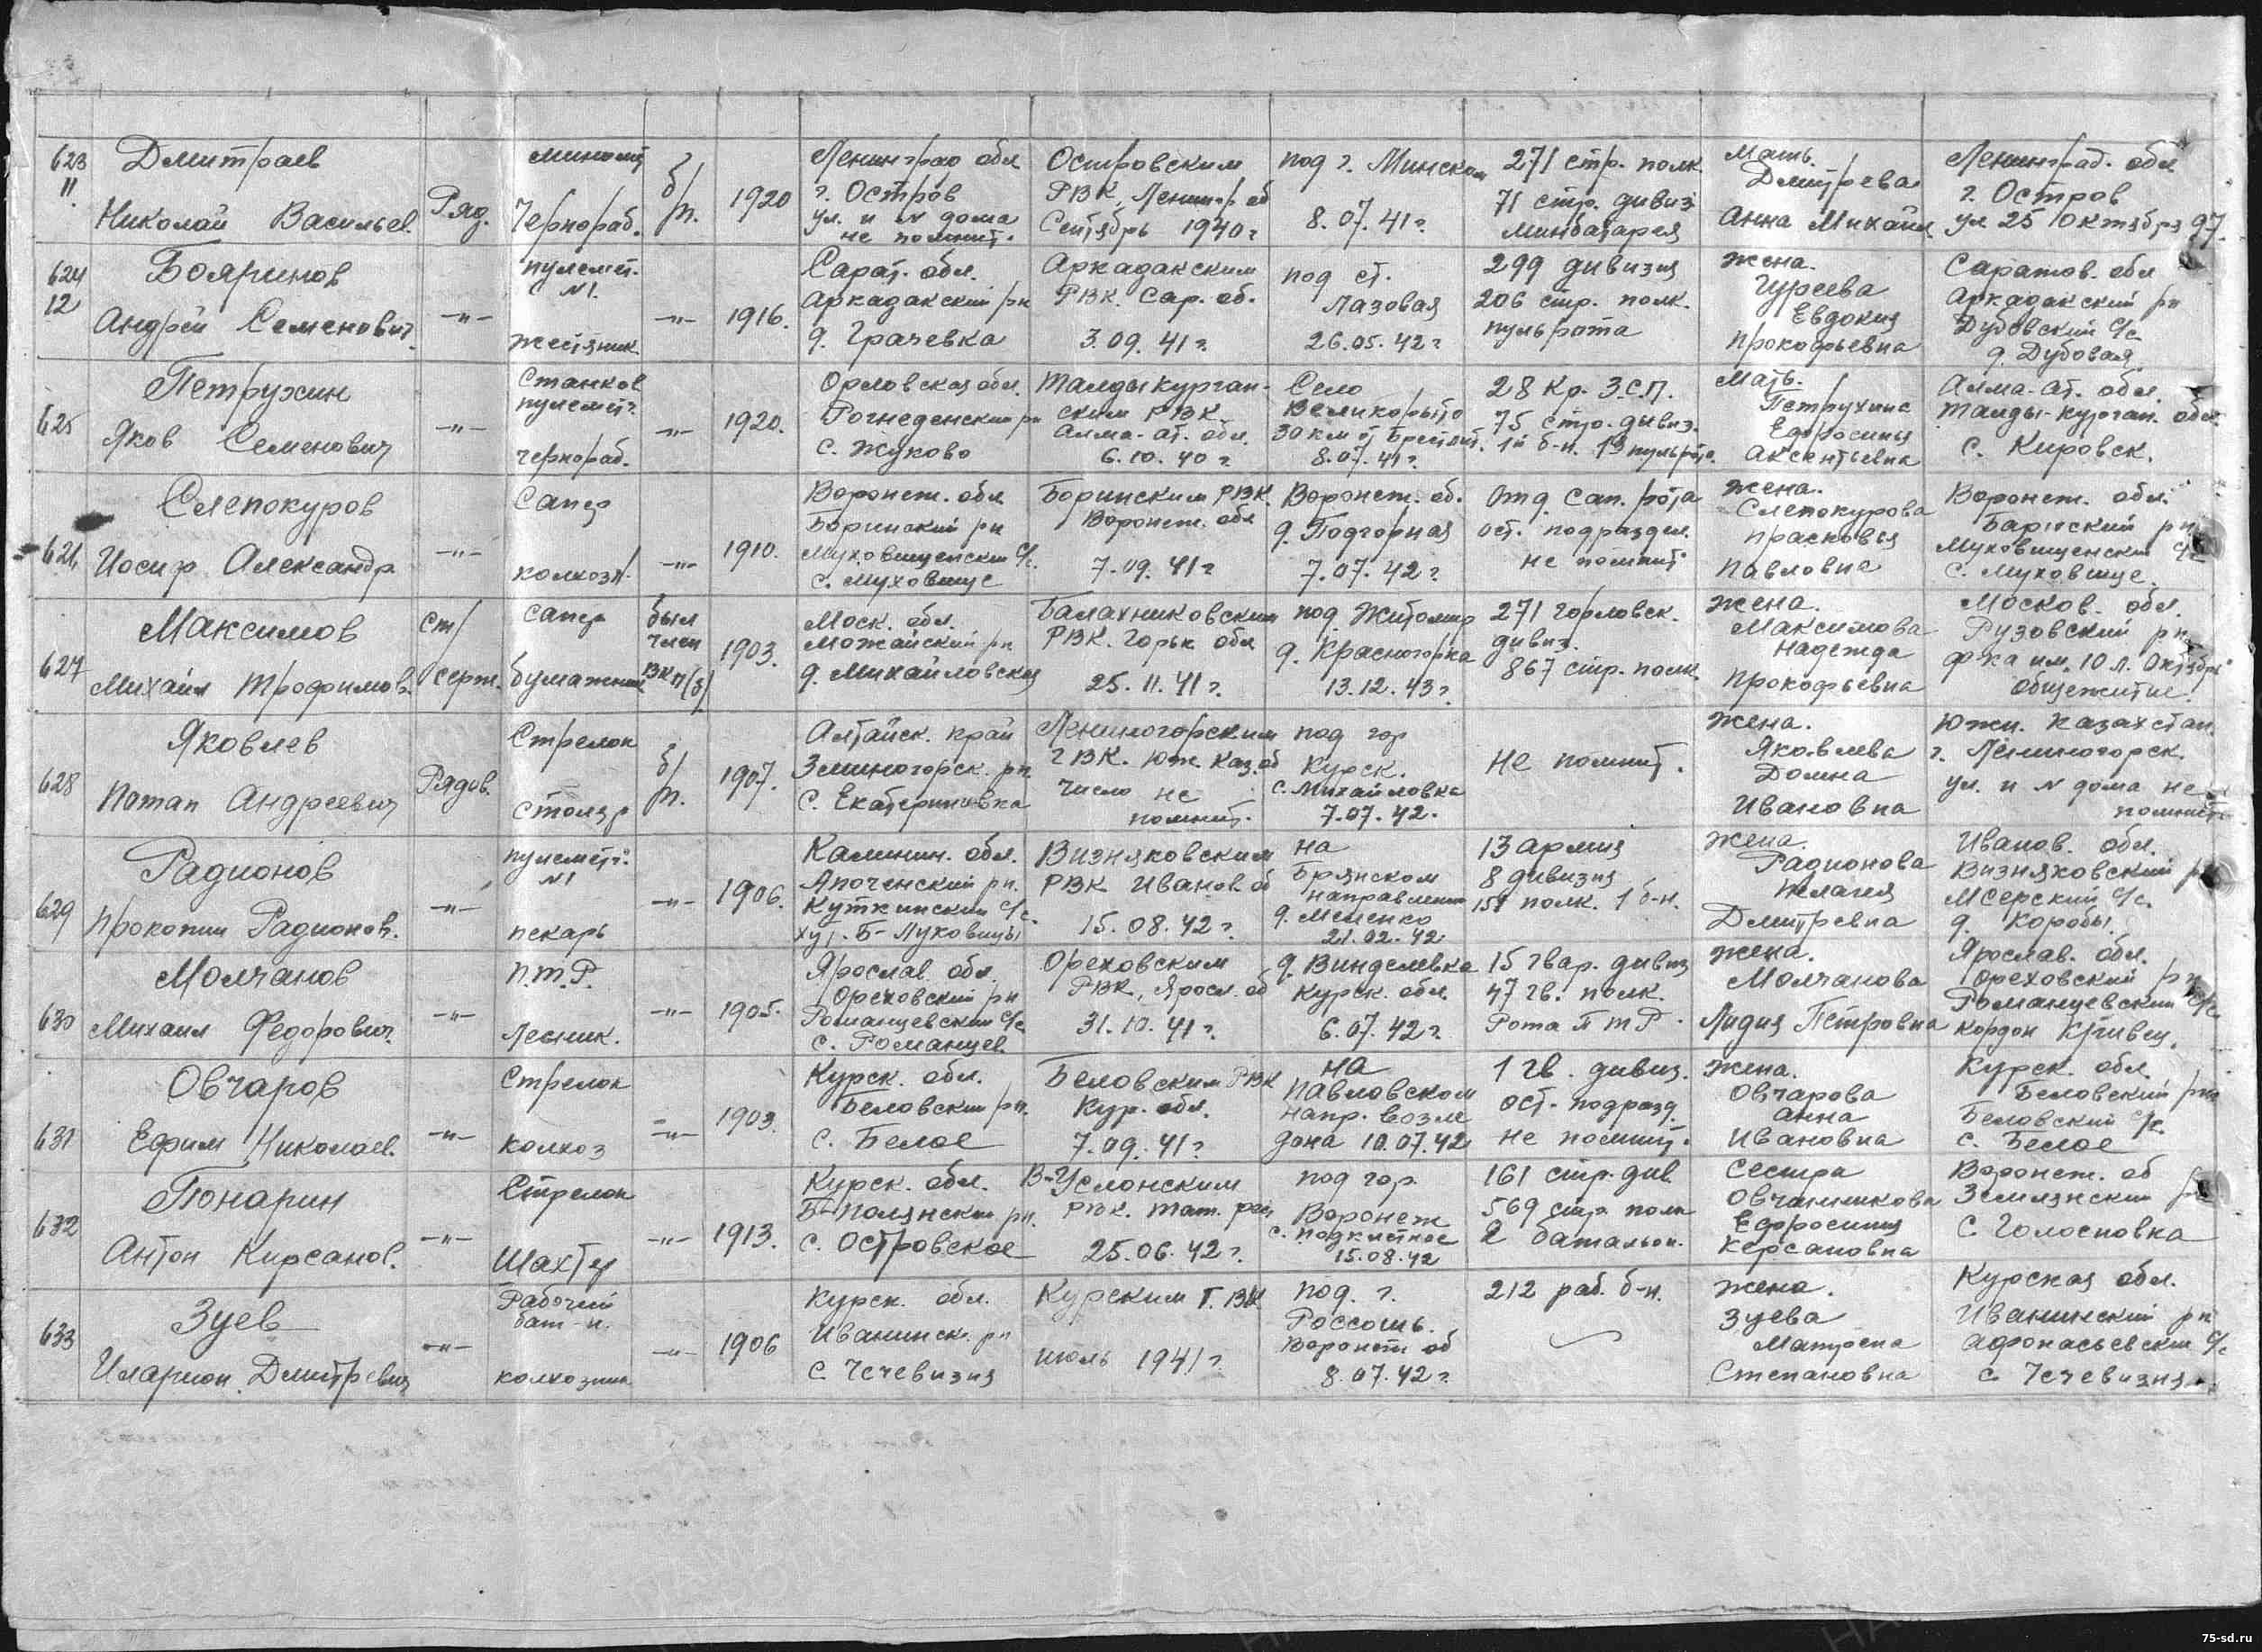 623
11.
Дмитраев
Николай Васильев.
Ряд.
миномет
Чернораб.
б/п.
1920
Ленинград обл
г. Остров
ул. и № дома
не помнит.
Островским
РВК, Ленингр об
Сентябрь 1940 г
под г. Минском
8.07.41 г.
271 стр. полк
71 стр. дивиз
минбатарея
Мать.
Дмитрева
Анна Михайл.
Ленинград. обл
г. Остров
ул 25 Октября 97.
624
12
Бояринов
Андрей Семенович
-"-
пулемет.
№1.
жестяник.
-"-
1916.
Сарат. обл.
Аркадакский рн
д. Грачевка
Аркадакским
РВК. Сар. об.
3.09.41 г.
под ст.
Лазовая
26.05.42 г
299 дивизия
206 стр. полк.
пульрота
жена.
Гуреева
Евдокия
Прокофьевна
Саратов. обл
Аркадакский рн
Дубовский с/с
д. Дубовая
625
Петрухин
Яков Семенович
-"-
Станков
пулемет.
чернораб.
-"-
1920.
Орловская обл.
Рогнеденский рн
с. Жуково
Талдыкурган-
ским РВК
Алма-ат. обл.
6.10.40 г
Село
Великорыто
30 км от Брестлит.
8.07.41 г.
28 Кр. З.С.П.
75 стр. дивиз.
1й б-н. 19 пульрота.
Мать.
Петрухина
Ефросинья
Аксентьевна
Алма-ат. обл.
Талды-курган. обл.
с. Кировск.
626
Слепокуров
Иосиф Александр
-"-
Сапер
колхозн.
-"-
1910.
Воронеж. обл
Боринский рн
Муховищенский с/с.
с. Муховище
Боринским РВК
Воронеж. обл
7.09.41 г
Воронеж. об.
д. Подгорная
7.07.42 г.
Отд. сап. рота
ост. подраздел.
не помнит
жена.
Слепокурова
Прасковья
Павловна
Воронеж. обл.
Баринский рн
Муховищенский с/с
с. Муховище.
627
Максимов
Михаил Трофимов.
Ст/
серж.
сапер
бумажник
был
член
ВКП(б)
1903.
Моск. обл.
Можайский рн
д. Михайловская
Балахниковским
РВК. Горьк обл
25.11.41 г.
под Житомир
д. Красногорка
13.12.43 г.
271 горловск.
дивиз.
867 стр. полк.
жена.
Максимова
Надежда
Прокофьевна
Москов. обл.
Рузовский рн
ф-ка им. 10 л. Октября
общежитие
628
Яковлев
Потап Андреевич
Рядов.
Стрелок
столяр
б/п.
1907.
Алтайск. край
Змииногорск. рн.
с. Екатериновка
Лениногорским
гВК. Юж. Каз. об
число не
помнит.
под гор
Курск.
с. Михайловка
7.07.42.
Не помнит.
жена.
Яковлева
Домна
Ивановна
Южн. Казахстан.
г. Лениногорск.
ул. и № дома не
помнит
629
Радионов
Прокопии Радионов.
-"-
пулемет.
№1
пекарь
-"-
1906.
Калинин. обл.
Апоченский рн.
Куткинский с/с.
хут. Б-Луковицы
Визняковским
РВК Иванов об
15.08.42 г.
на
Брянском
направлении
д. Меленко
21.02.42
13 армия
8 дивизия
151 полк. 1 б-н.
жена.
Радионова
Пелагея
Дмитревна
Иванов. обл.
Визняховский р
Мсерский с/с.
д. Коробы
630
Молчанов
Михаил Федорович
-"-
П.Т.Р.
Лесник.
-"-
1905.
Ярослав. обл.
Ореховский рн
Романцевский с/с
с. Романцев.
Ореховским
РВК, Яросл. об
31.10.41 г.
д. Винделевка
Курск. обл.
6.07.42 г.
15 гвар. дивиз
47 гв. полк.
Рота ПТР.
жена.
Молчанова
Лидия Петровна
Ярослав. обл.
Ореховский рн
Романцевский с/с.
кордон Кривец.
631
Овчаров
Ефим Николаев.
-"-
Стрелок
колхоз
-"-
1903.
Курск. обл.
Беловский рн.
с. Белое
Беловским РВК
Кур. обл.
7.09.41 г.
на
Павловском
напр. возле
дона 10.07.42
1 гв. дивиз.
ост. подразд.
не помнит.
жена.
Овчарова
Анна
Ивановна
Курск. обл.
Беловский рн
Беловский с/с.
с. Белое
632
Понарин
Антон Кирсанов.
-"-
Стрелок
Шахтер
-"-
1913.
Курск. обл.
Б-Полянский рн.
с. Островское
В-Услонским
РВК. Тат. рес
25.06.42 г.
под гор.
Воронеж
с. Подклетное
15.08.42
161 стр. див.
569 стр. полк
2 батальон.
Сестра
Овчинникова
Ефросиния
Керсановна
Воронеж. об
Землянский р
с Голосновка
633
Зуев
Иларион Дмитревич
-"-
Рабочий
бат-н.
колхозник
-"-
1906
Курск. обл.
Иванинск. рн
с. Чечевизня
Курским Г.ВК
июль 1941 г.
под. г.
Россошь.
Воронеж об
8.07.42 г.
212 раб. б-н.
жена.
Зуева
Матрена
Степановна
Курская обл.
Иванинский рн
Афонасьевский с/с
с. Чечевизня
75-sd.ru